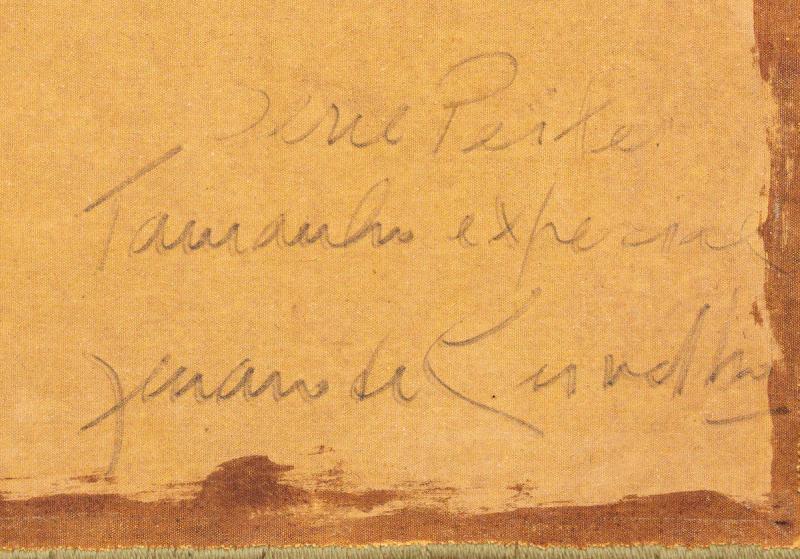 Serie Peixe
Tamanho experime
Genaro de Carvalho